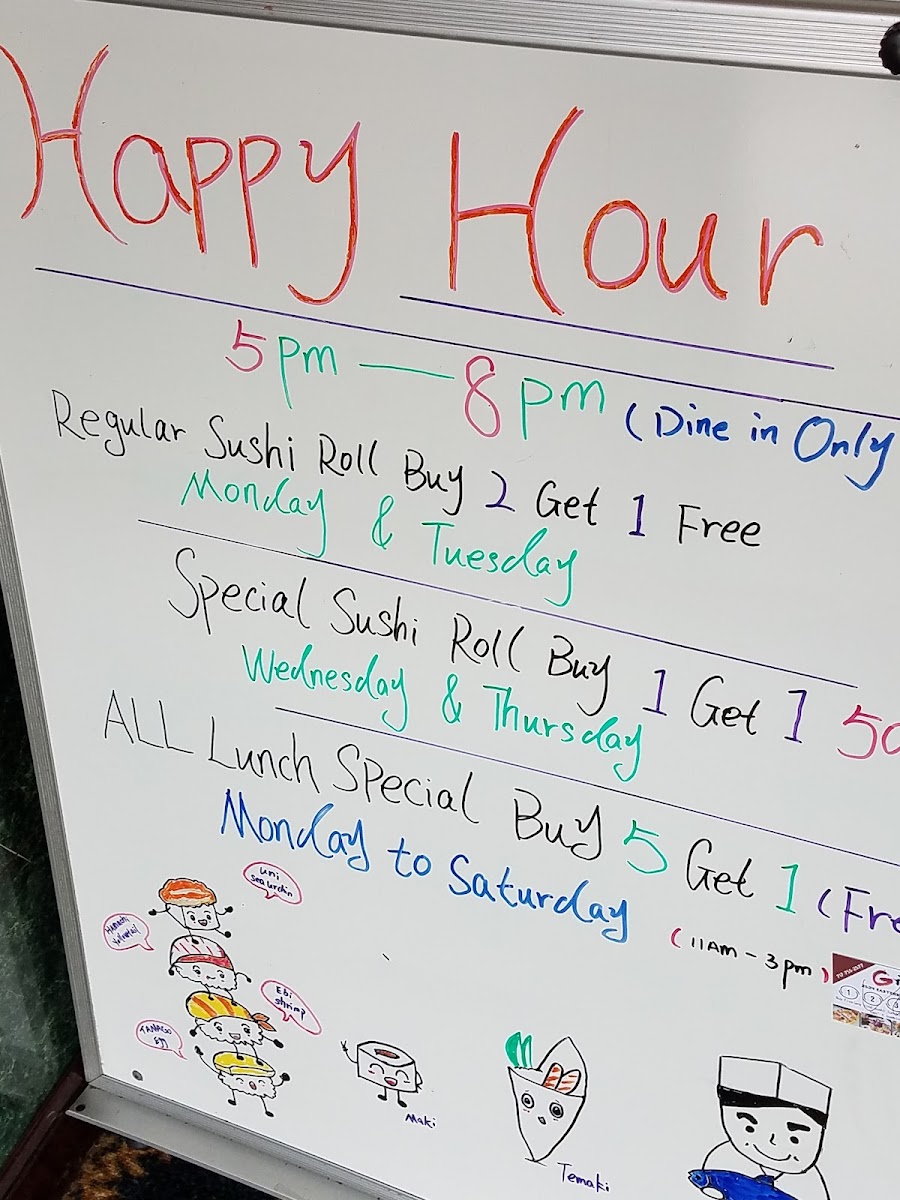 Happy Hour
5pm — 8pm (Dine in Only
Regular Sushi Roll Buy 2 Get 1 Free
Monday & Tuesday
Special Sushi Roll Buy 1 Get 1
Wednesday & Thursday
ALL Lunch Special Buy 5 Get 1 (Fre
Monday to Saturday
(11AM - 3pm)
uni
sea urchin
Hamachi
Ebi
shrimp
TAMAGO
egg
Maki
Temaki